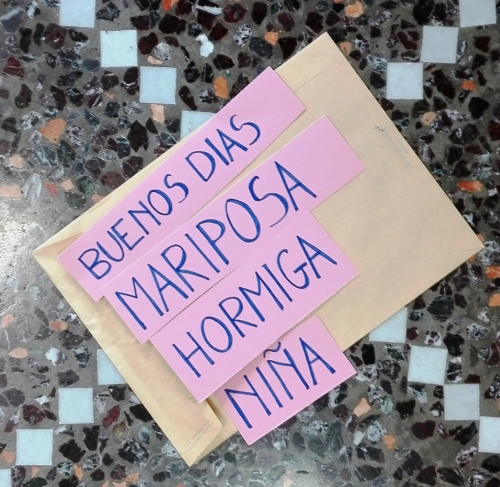 BUENOS DIAS
MARIPOSA
HORMIGA
NIÑA